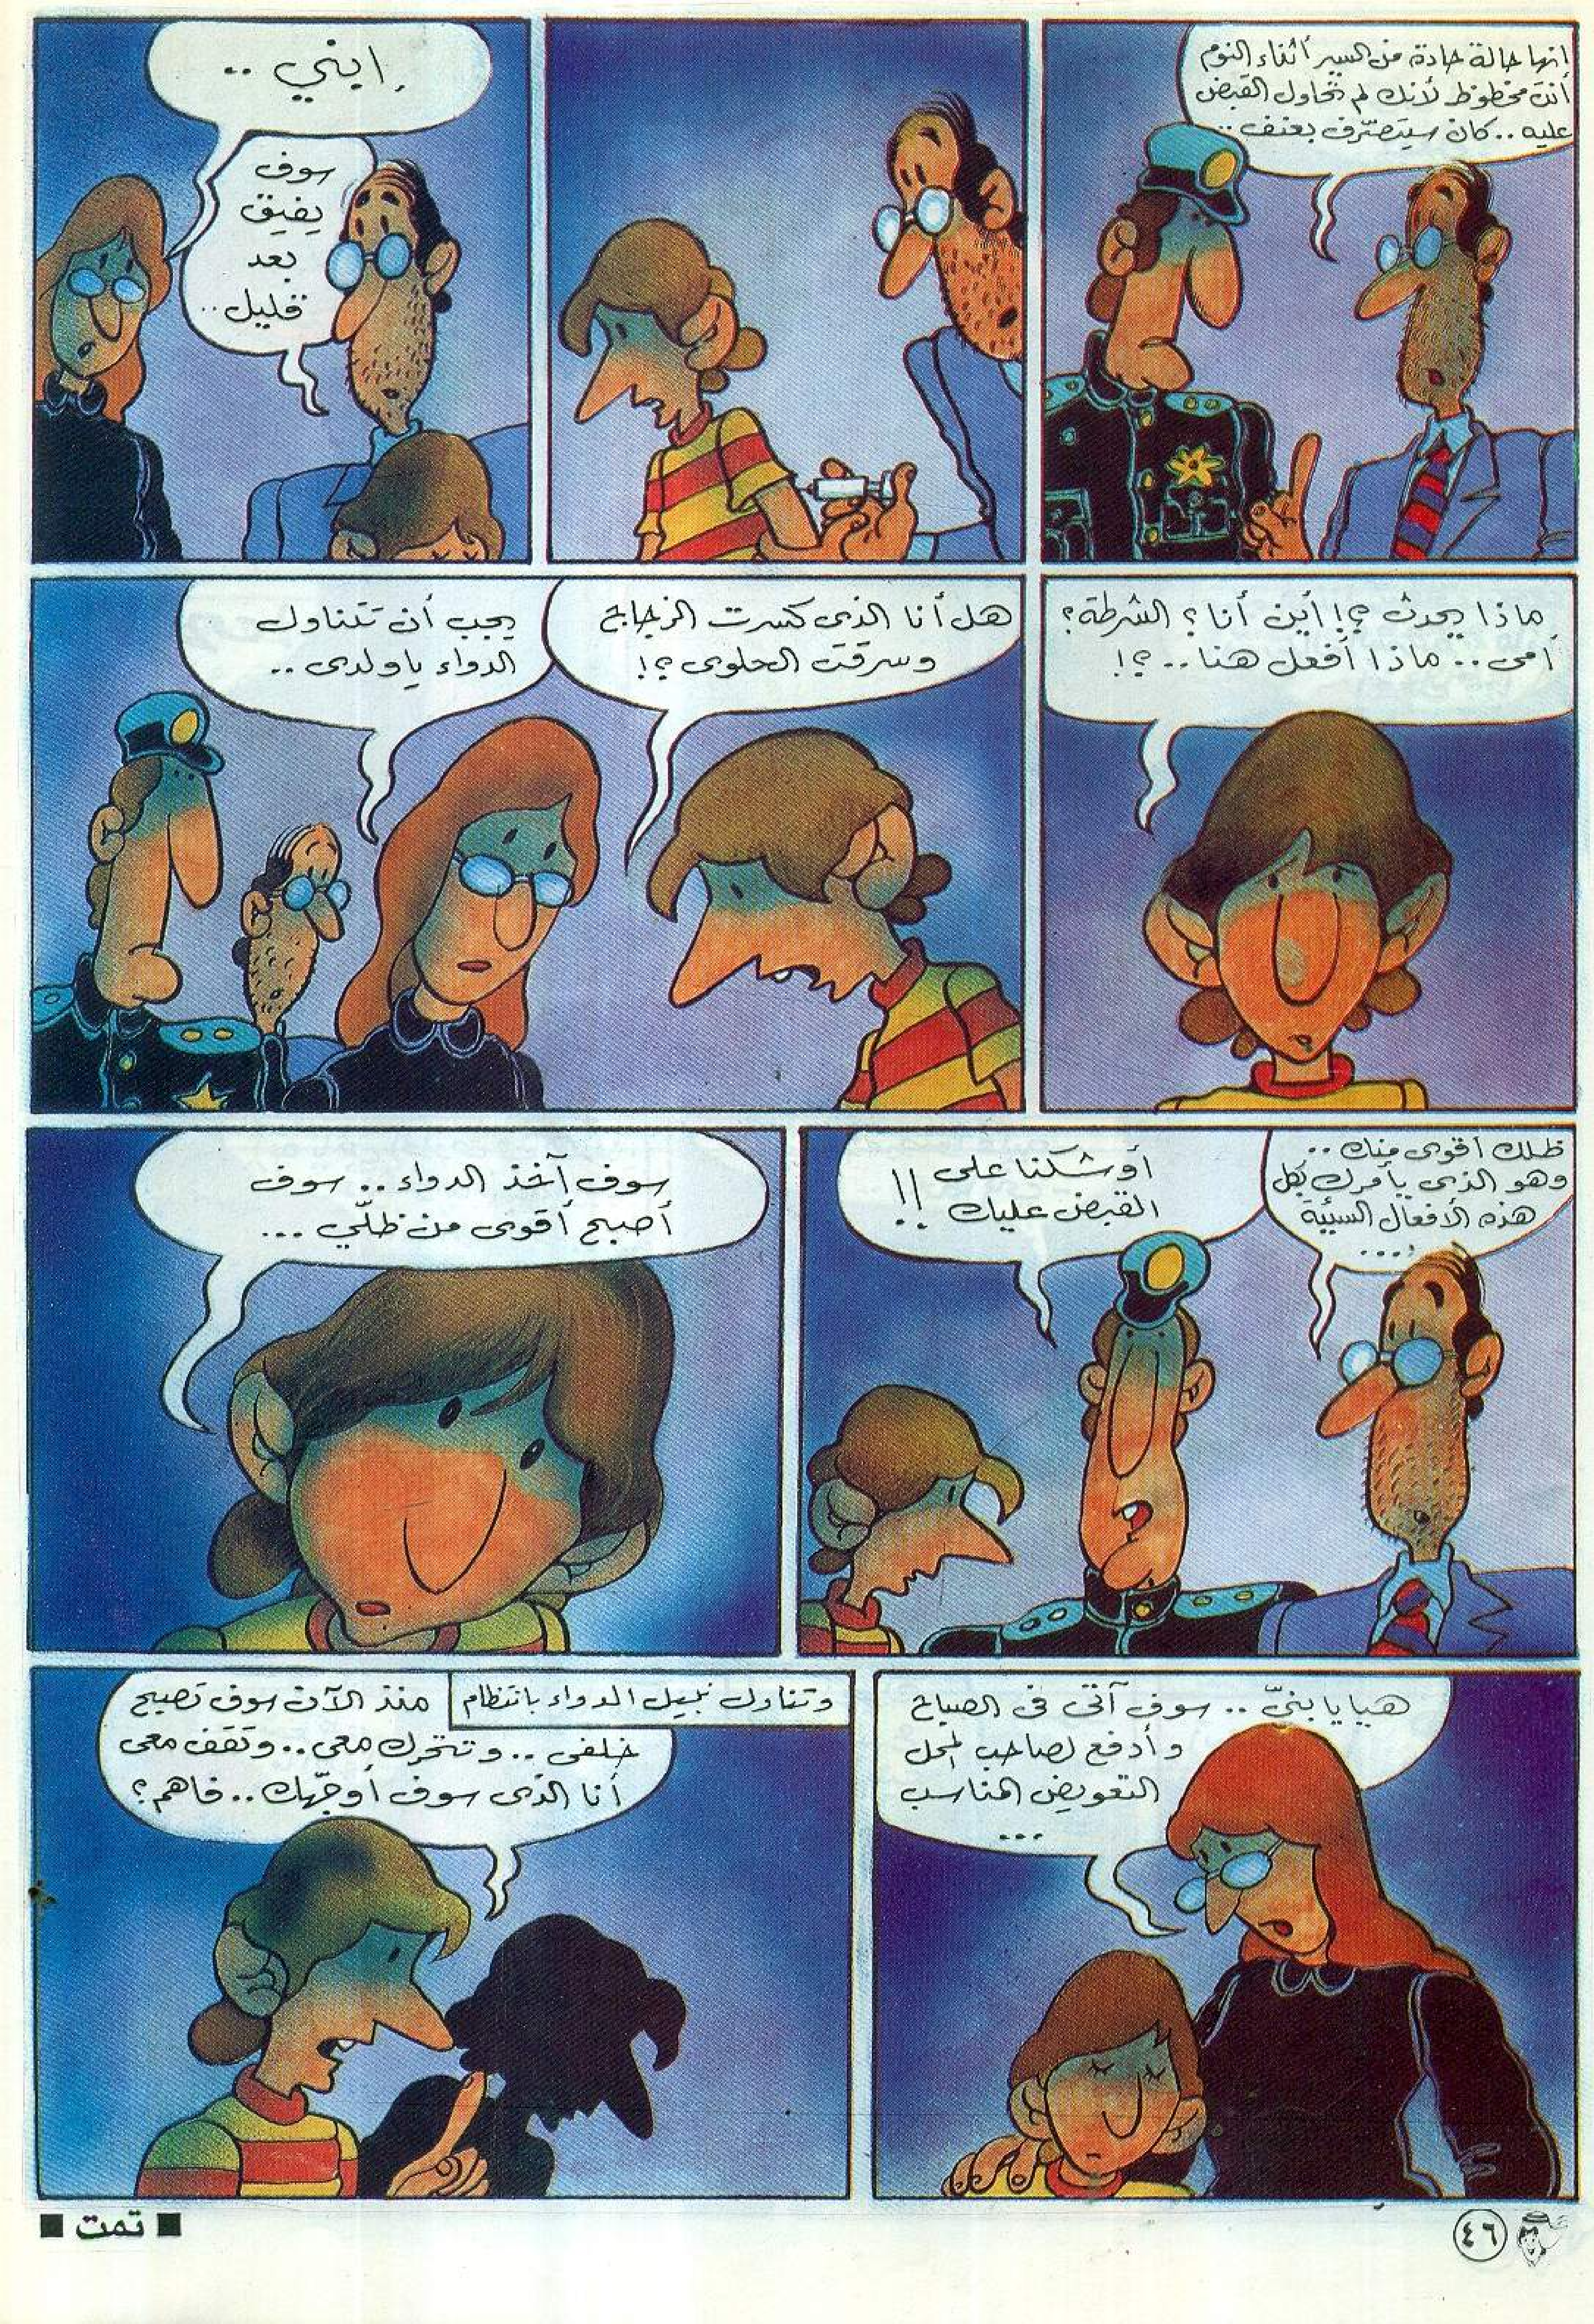 انها حالة حادة من السير أثناء النوم
أنت محظوظ لأنك لم تحاول القبض
عليه .. كان سيتصرّف بعنف ..
إبني ..
سوف
يفيق
بعد
قليل ..
ماذا يحدث ؟! أين أنا ؟ الشرطة ؟
أمى .. ماذا أفعل هنا .. ؟!
هل أنا الذى كسرت الزجاج
وسرقت الحلوى ؟!
يجب أن تتناول
الدواء ياولدى ..
ظلك أقوى منك ..
وهو الذى يأمرك بكل
هذه الأفعال السيئة
...
أوشكنا على
القبض عليك !!
سوف آخذ الدواء .. سوف
أصبح أقوى من ظلّي ...
هيا يا بنىّ .. سوف آتى فى الصباح
وأدفع لصاحب المحل
التعويض المناسب
...
وتناول نبيل الدواء بانتظام
منذ الآن سوف تصبح
خلفى .. وتتحرك معى .. وتقف معى
أنا الذى سوف أوجّهك .. فاهم ؟
■ تمت ■
٤٦